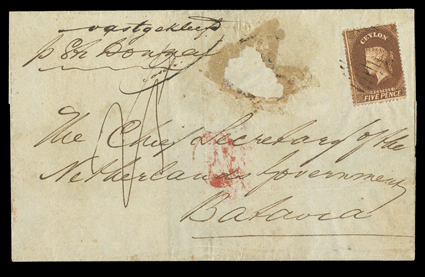 vastgekleefd
CEYLON
POSTAGE
FIVE PENCE
The Chief Secretary of the
Netherlands Government
Batavia